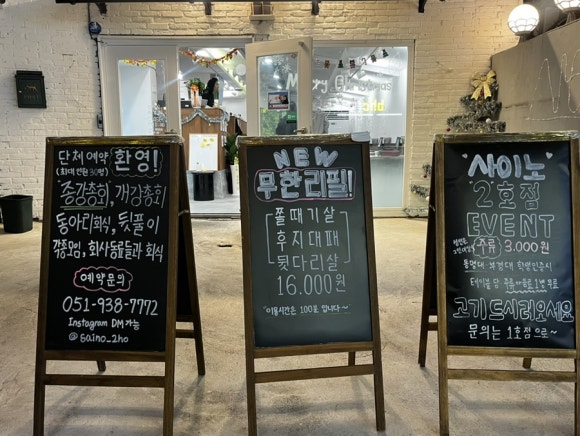 단체 예약 환영!
(최대 인원 30명)
종강총회, 개강총회
동아리회식, 뒷풀이
각종모임, 회사동료들과 회식
예약문의
051-938-7772
Instagram DM 가능
@saino_2ho
NEW
무한리필!
쫄때기살
후지대패
뒷다리살
16.000원
*이용시간은 100분 입니다~
사이노
2호점
EVENT
주류 3.000원
동명대·부경대 학생인증시
테이블 당 주류or음료 1병 무료
고기 드시러오세요
문의는 1호점으로~
Merry